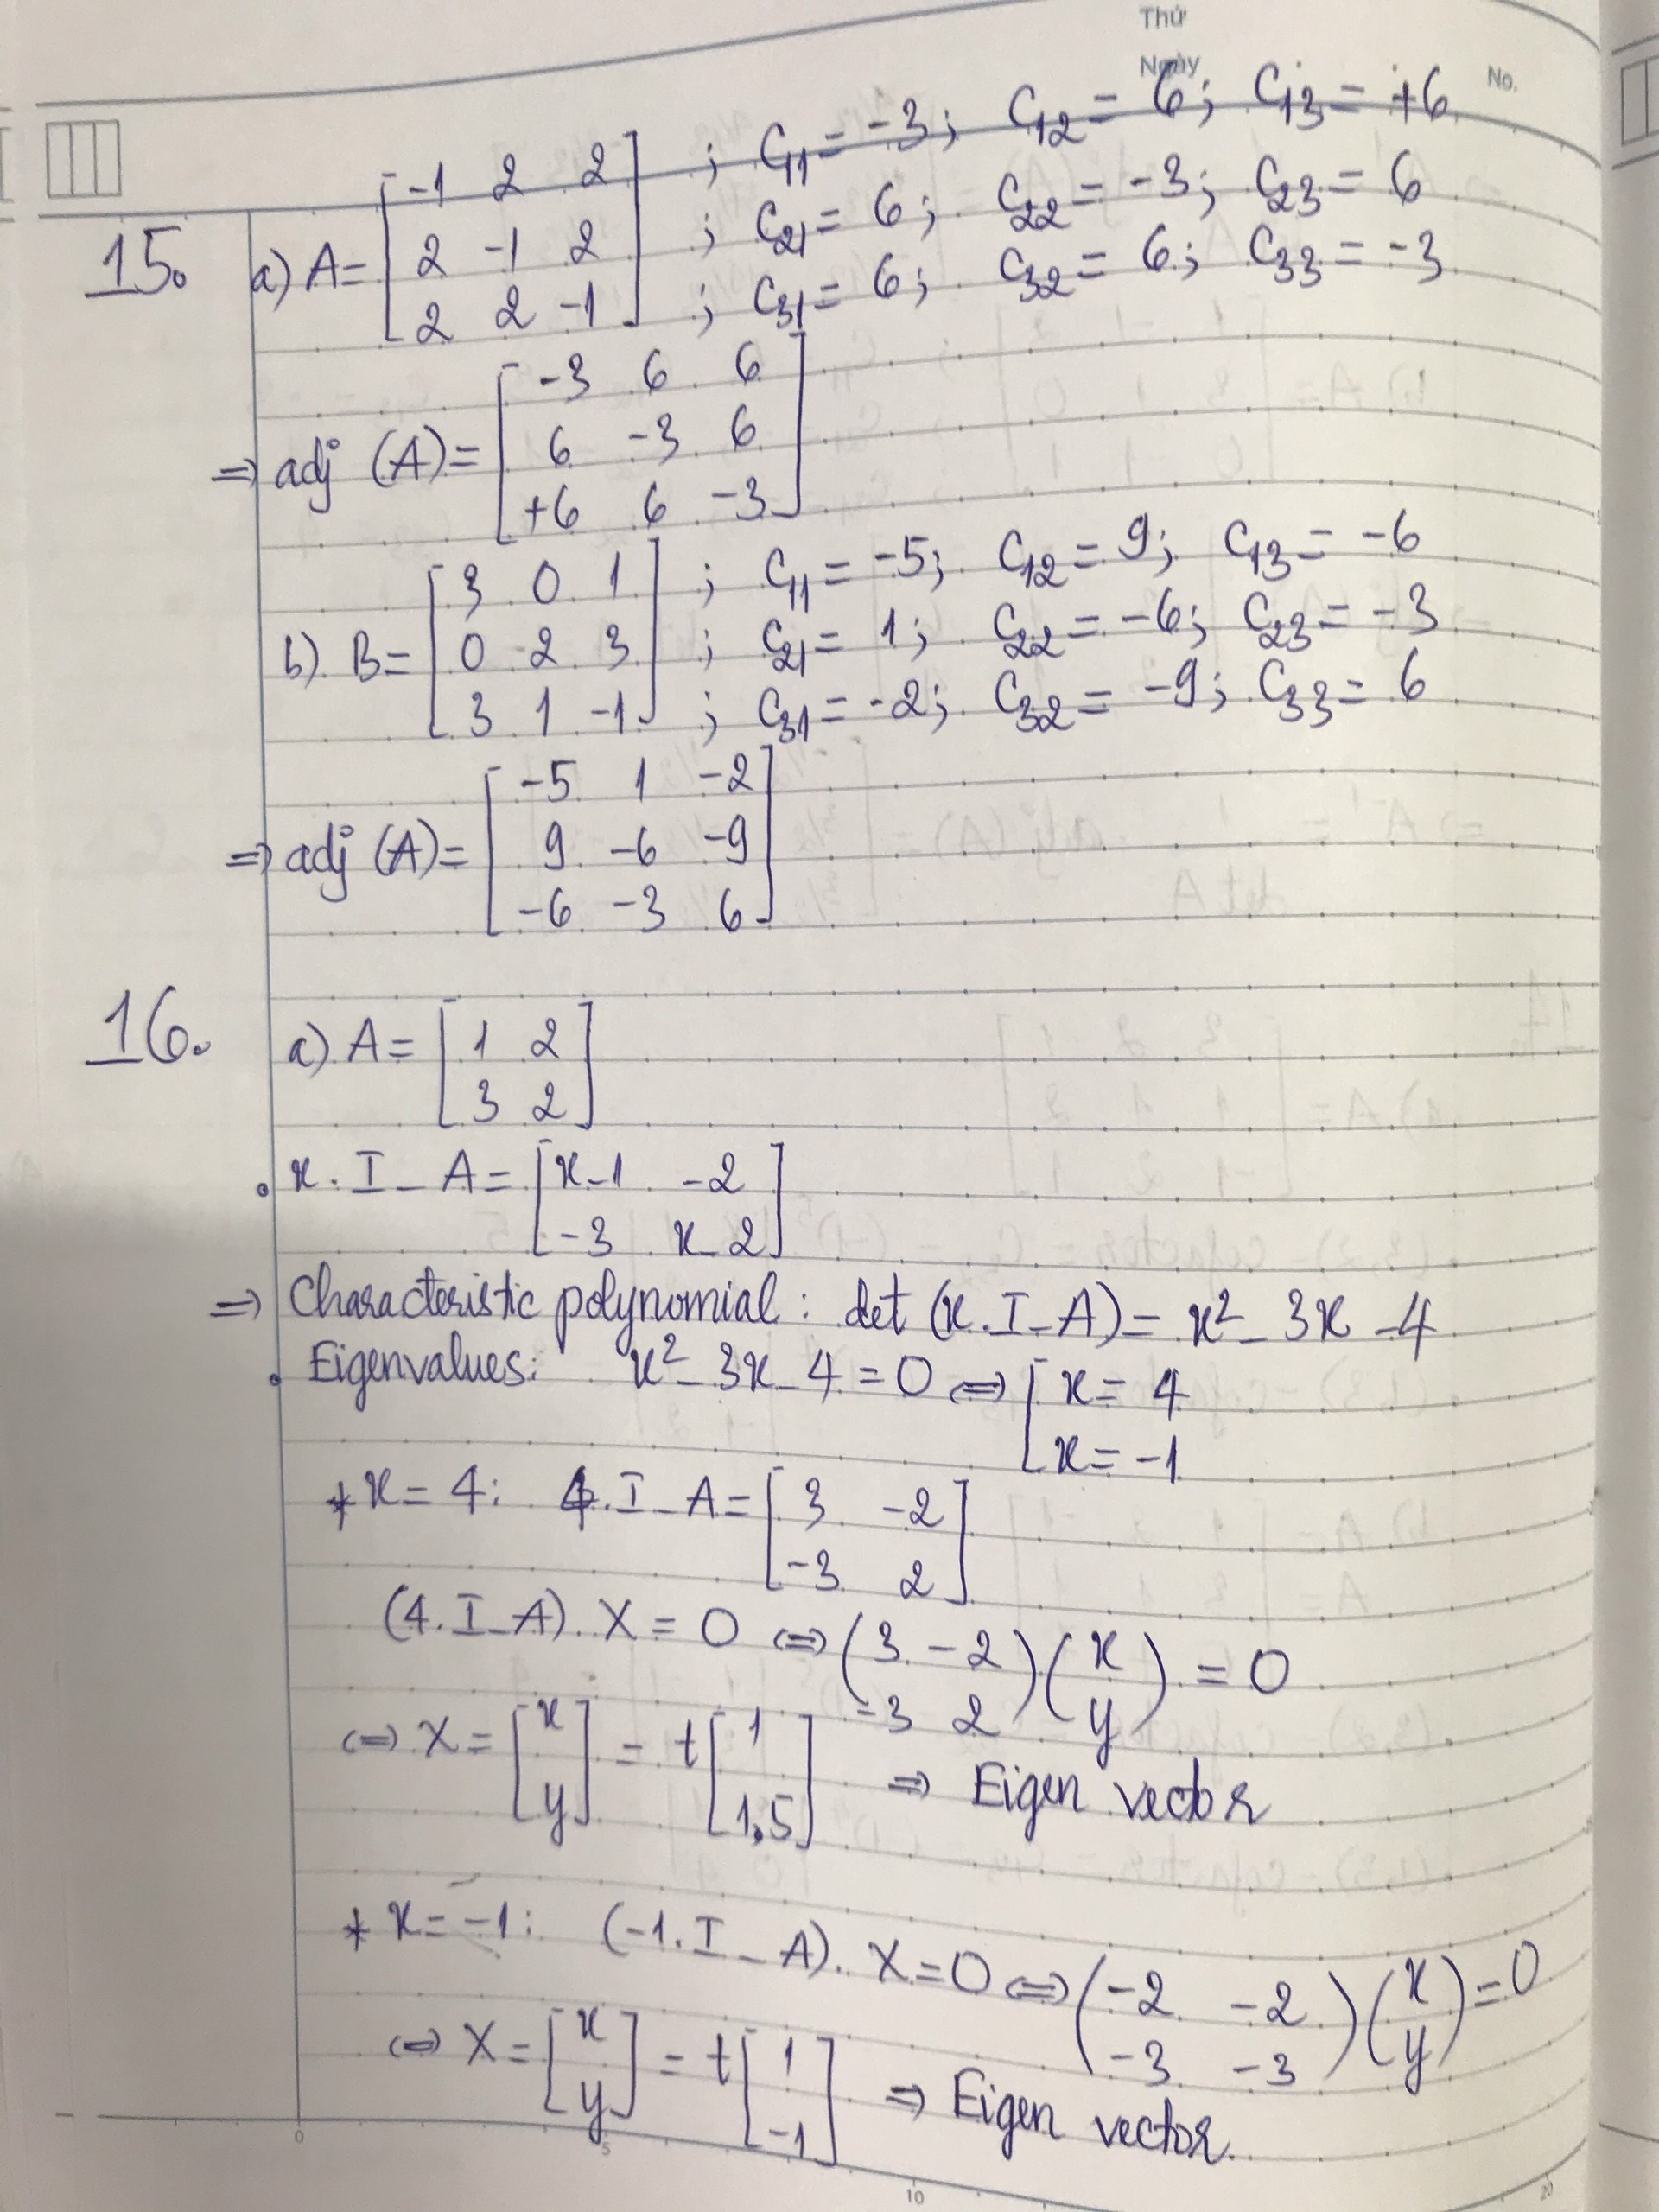 Thứ
Ngày No.
15. a) A = [-1 2 2; 2 -1 2; 2 2 -1]
; C11 = -3; C12 = 6; C13 = +6
; C21 = 6; C22 = -3; C23 = 6
; C31 = 6; C32 = 6; C33 = -3
=> adj (A) = [-3 6 6; 6 -3 6; +6 6 -3]
b) B = [3 0 1; 0 2 3; 3 1 -1]
; C11 = -5; C12 = 9; C13 = -6
; C21 = 1; C22 = -6; C23 = -3
; C31 = -2; C32 = -9; C33 = 6
=> adj (A) = [-5 1 -2; 9 -6 -9; -6 -3 6]
16. a) A = [1 2; 3 2]
• x. I - A = [x-1 -2; -3 x-2]
=> Characteristic polynomial: det (x.I-A) = x² - 3x - 4
• Eigenvalues: x² - 3x - 4 = 0 <=> [x = 4
x = -1
* x = 4: 4. I - A = [3 -2; -3 2]
(4.I-A). X = 0 <=> (3 -2; -3 2)(x; y) = 0
<=> X = [x; y] = t[1; 1,5] => Eigen vector
* x = -1: (-1.I - A). X = 0 <=> (-2 -2; -3 -3)(x; y) = 0
<=> X = [x; y] = t[1; -1] => Eigen vector.
0 5 10 20